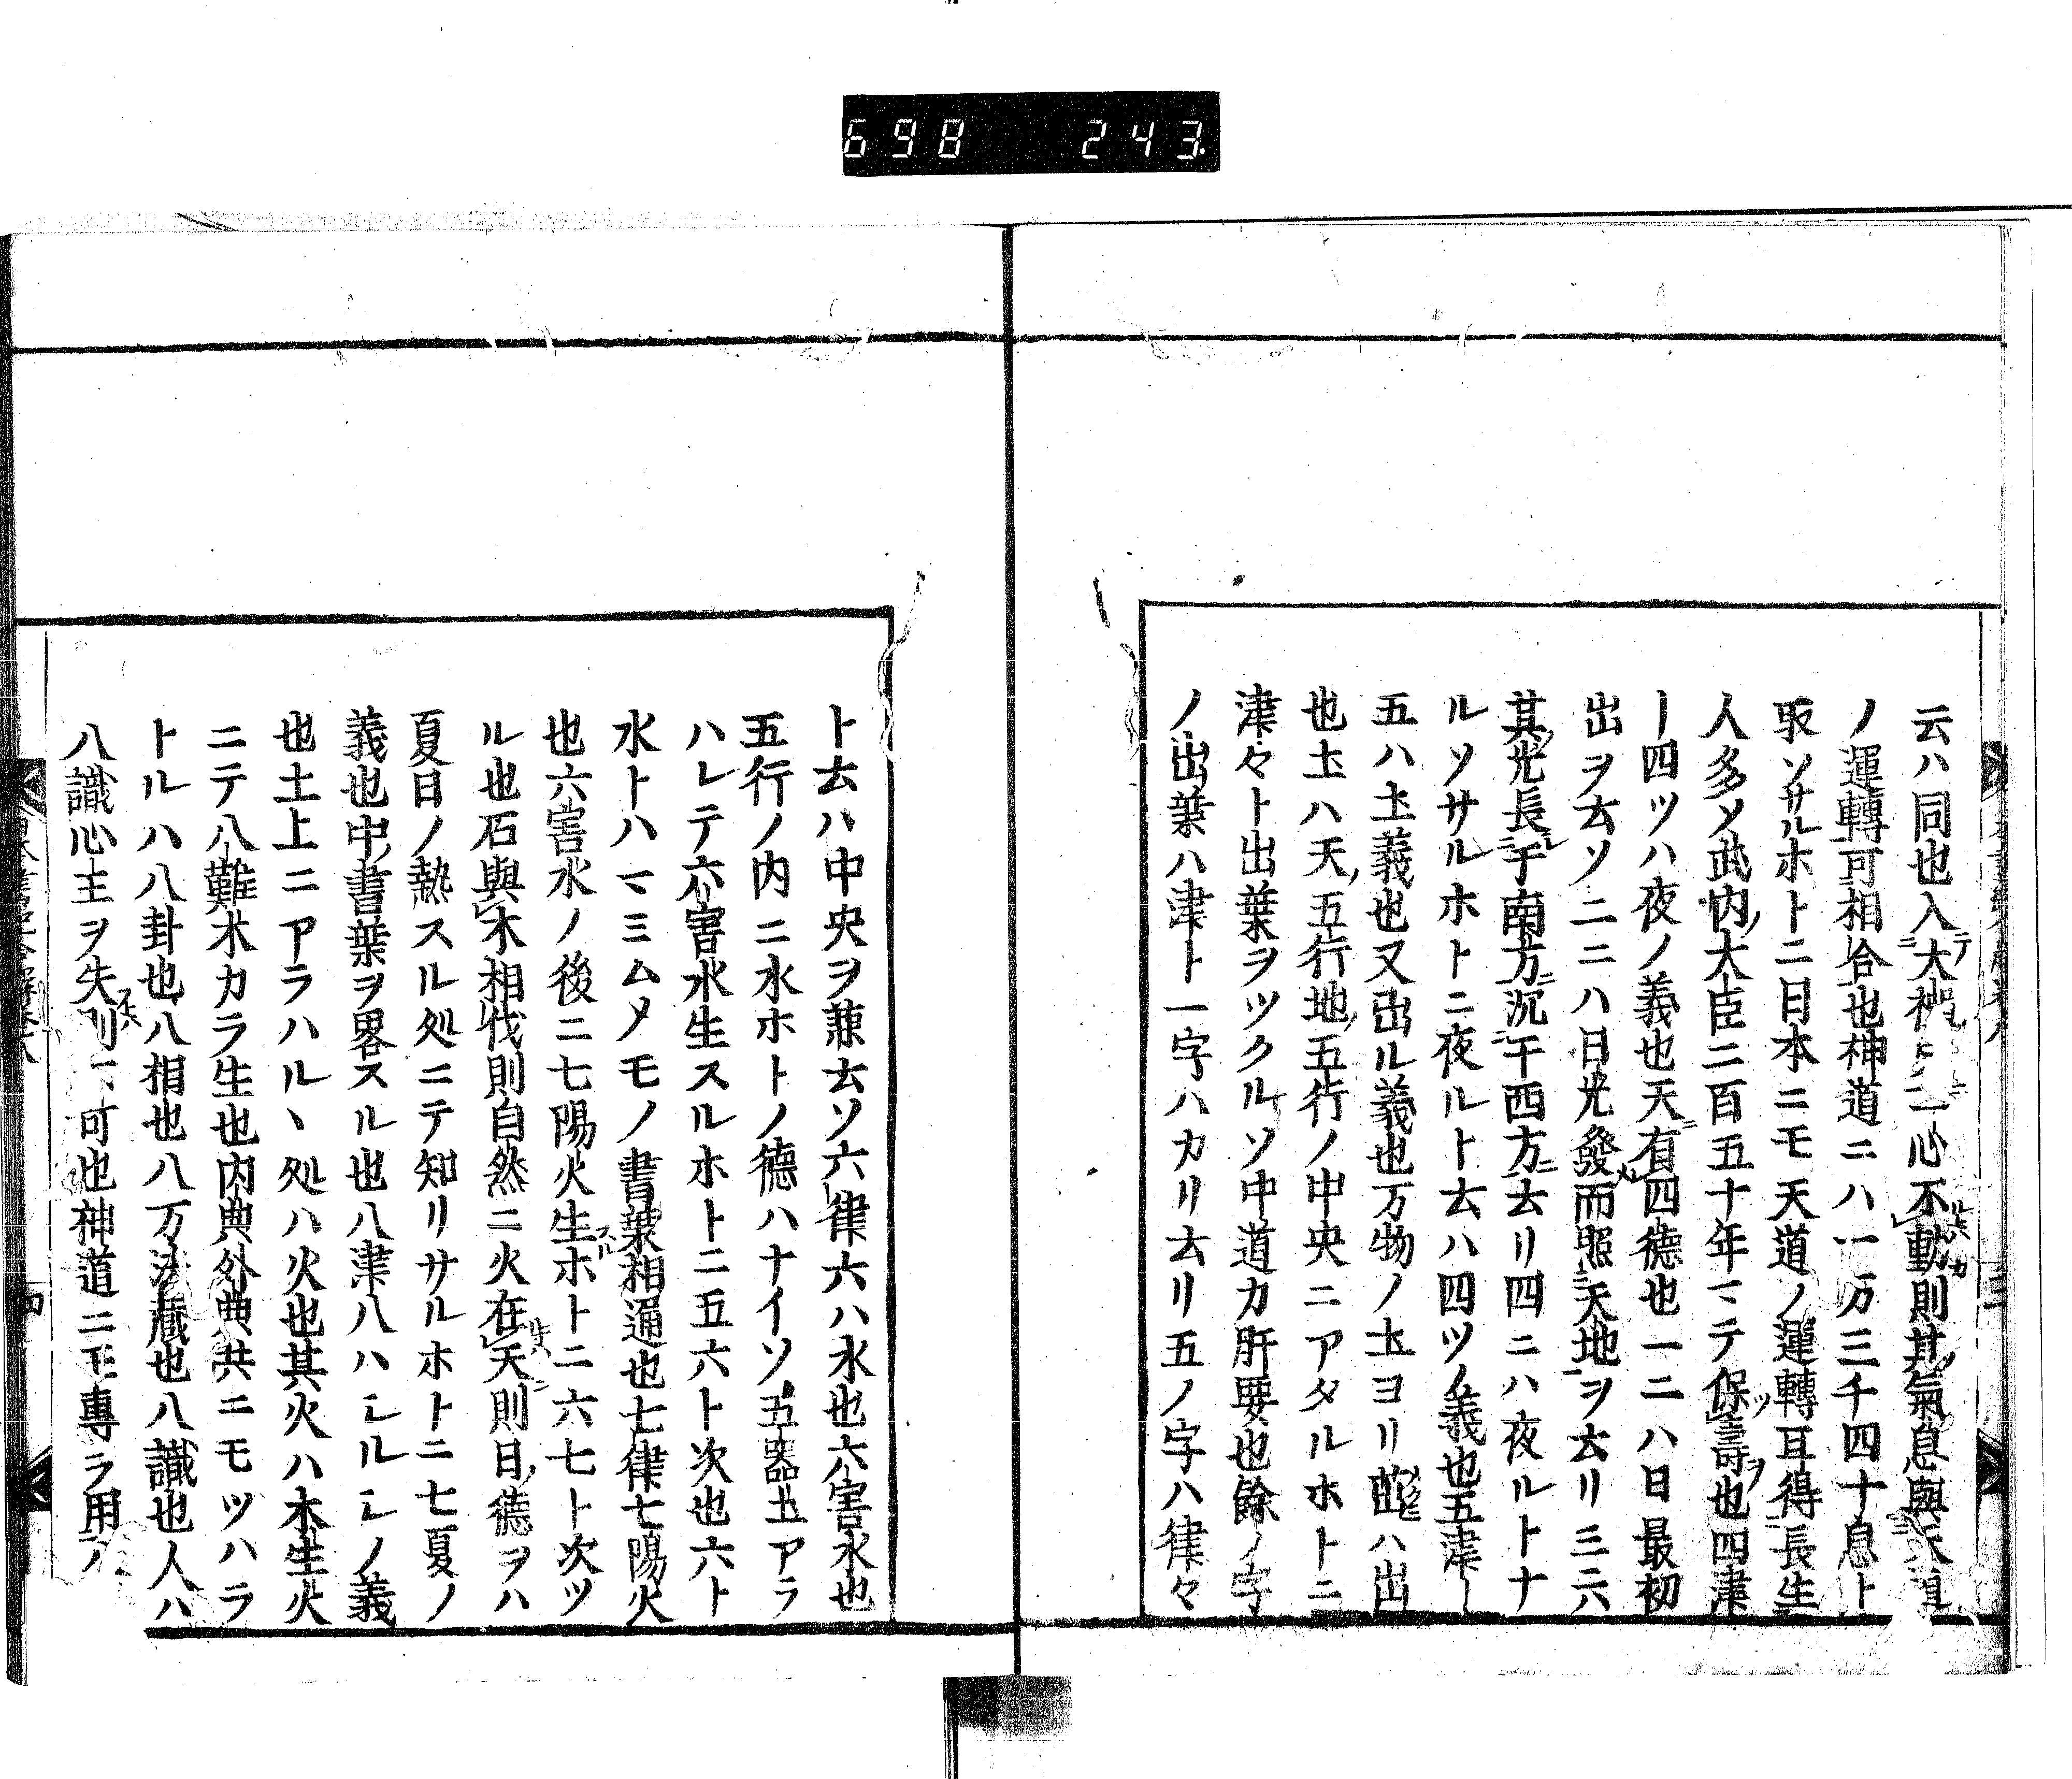 698 243
云ハ同也入大神二一心不動則其氣息與天道
ノ運轉可相合也神道ニハ一万三千四十息ト
取ソサルホトニ日本ニモ天道ノ運轉耳得長生
人多ソ武内大臣二百五十年マテ保壽也四津
ー四ツハ夜ノ義也天有四德也一二ハ日最初
出ヲ云ソ二ニハ日光發而照天地ヲ云リ三六
其光長于南方沉于西方云リ四ニハ夜ルトナ
ルソサルホトニ夜ルト云ハ四ツノ義也五津ー
五ハ土義也又出ル義也万物ノ土ヨリ出ハ出
也土ハ天五行地五行ノ中央ニアタルホトニ
津々ト出葉ヲツクルソ中道カ肝要也餘ノ字
ノ出葉ハ津ト一字ハカリ云リ五ノ字ハ律々
ト云ハ中央ヲ兼云ソ六律六ハ水也六害水也
五行ノ内ニ水ホトノ德ハナイソ五器土アラ
ハレテ六害水生スルホトニ五六ト次也六ト
水トハマミムメモノ書葉相通也七律七陽火
也六害水ノ後ニ七陽火生ホトニ六七ト次ツ
ル也石與木相伐則自然ニ火在天則日德ヲハ
夏日ノ熱スル処ニテ知リサルホトニ七夏ノ
義也中書葉ヲ畧スル也八津八ハヒルヒノ義
也土上ニアラハルヽ処ハ火也其火ハ木生火
ニテ八難木カラ生也内典外典共ニモツハラ
トルハ八卦也八相也八万法藏也八識也人ハ
八識心主ヲ失則可也神道ニモ專ラ用ノ